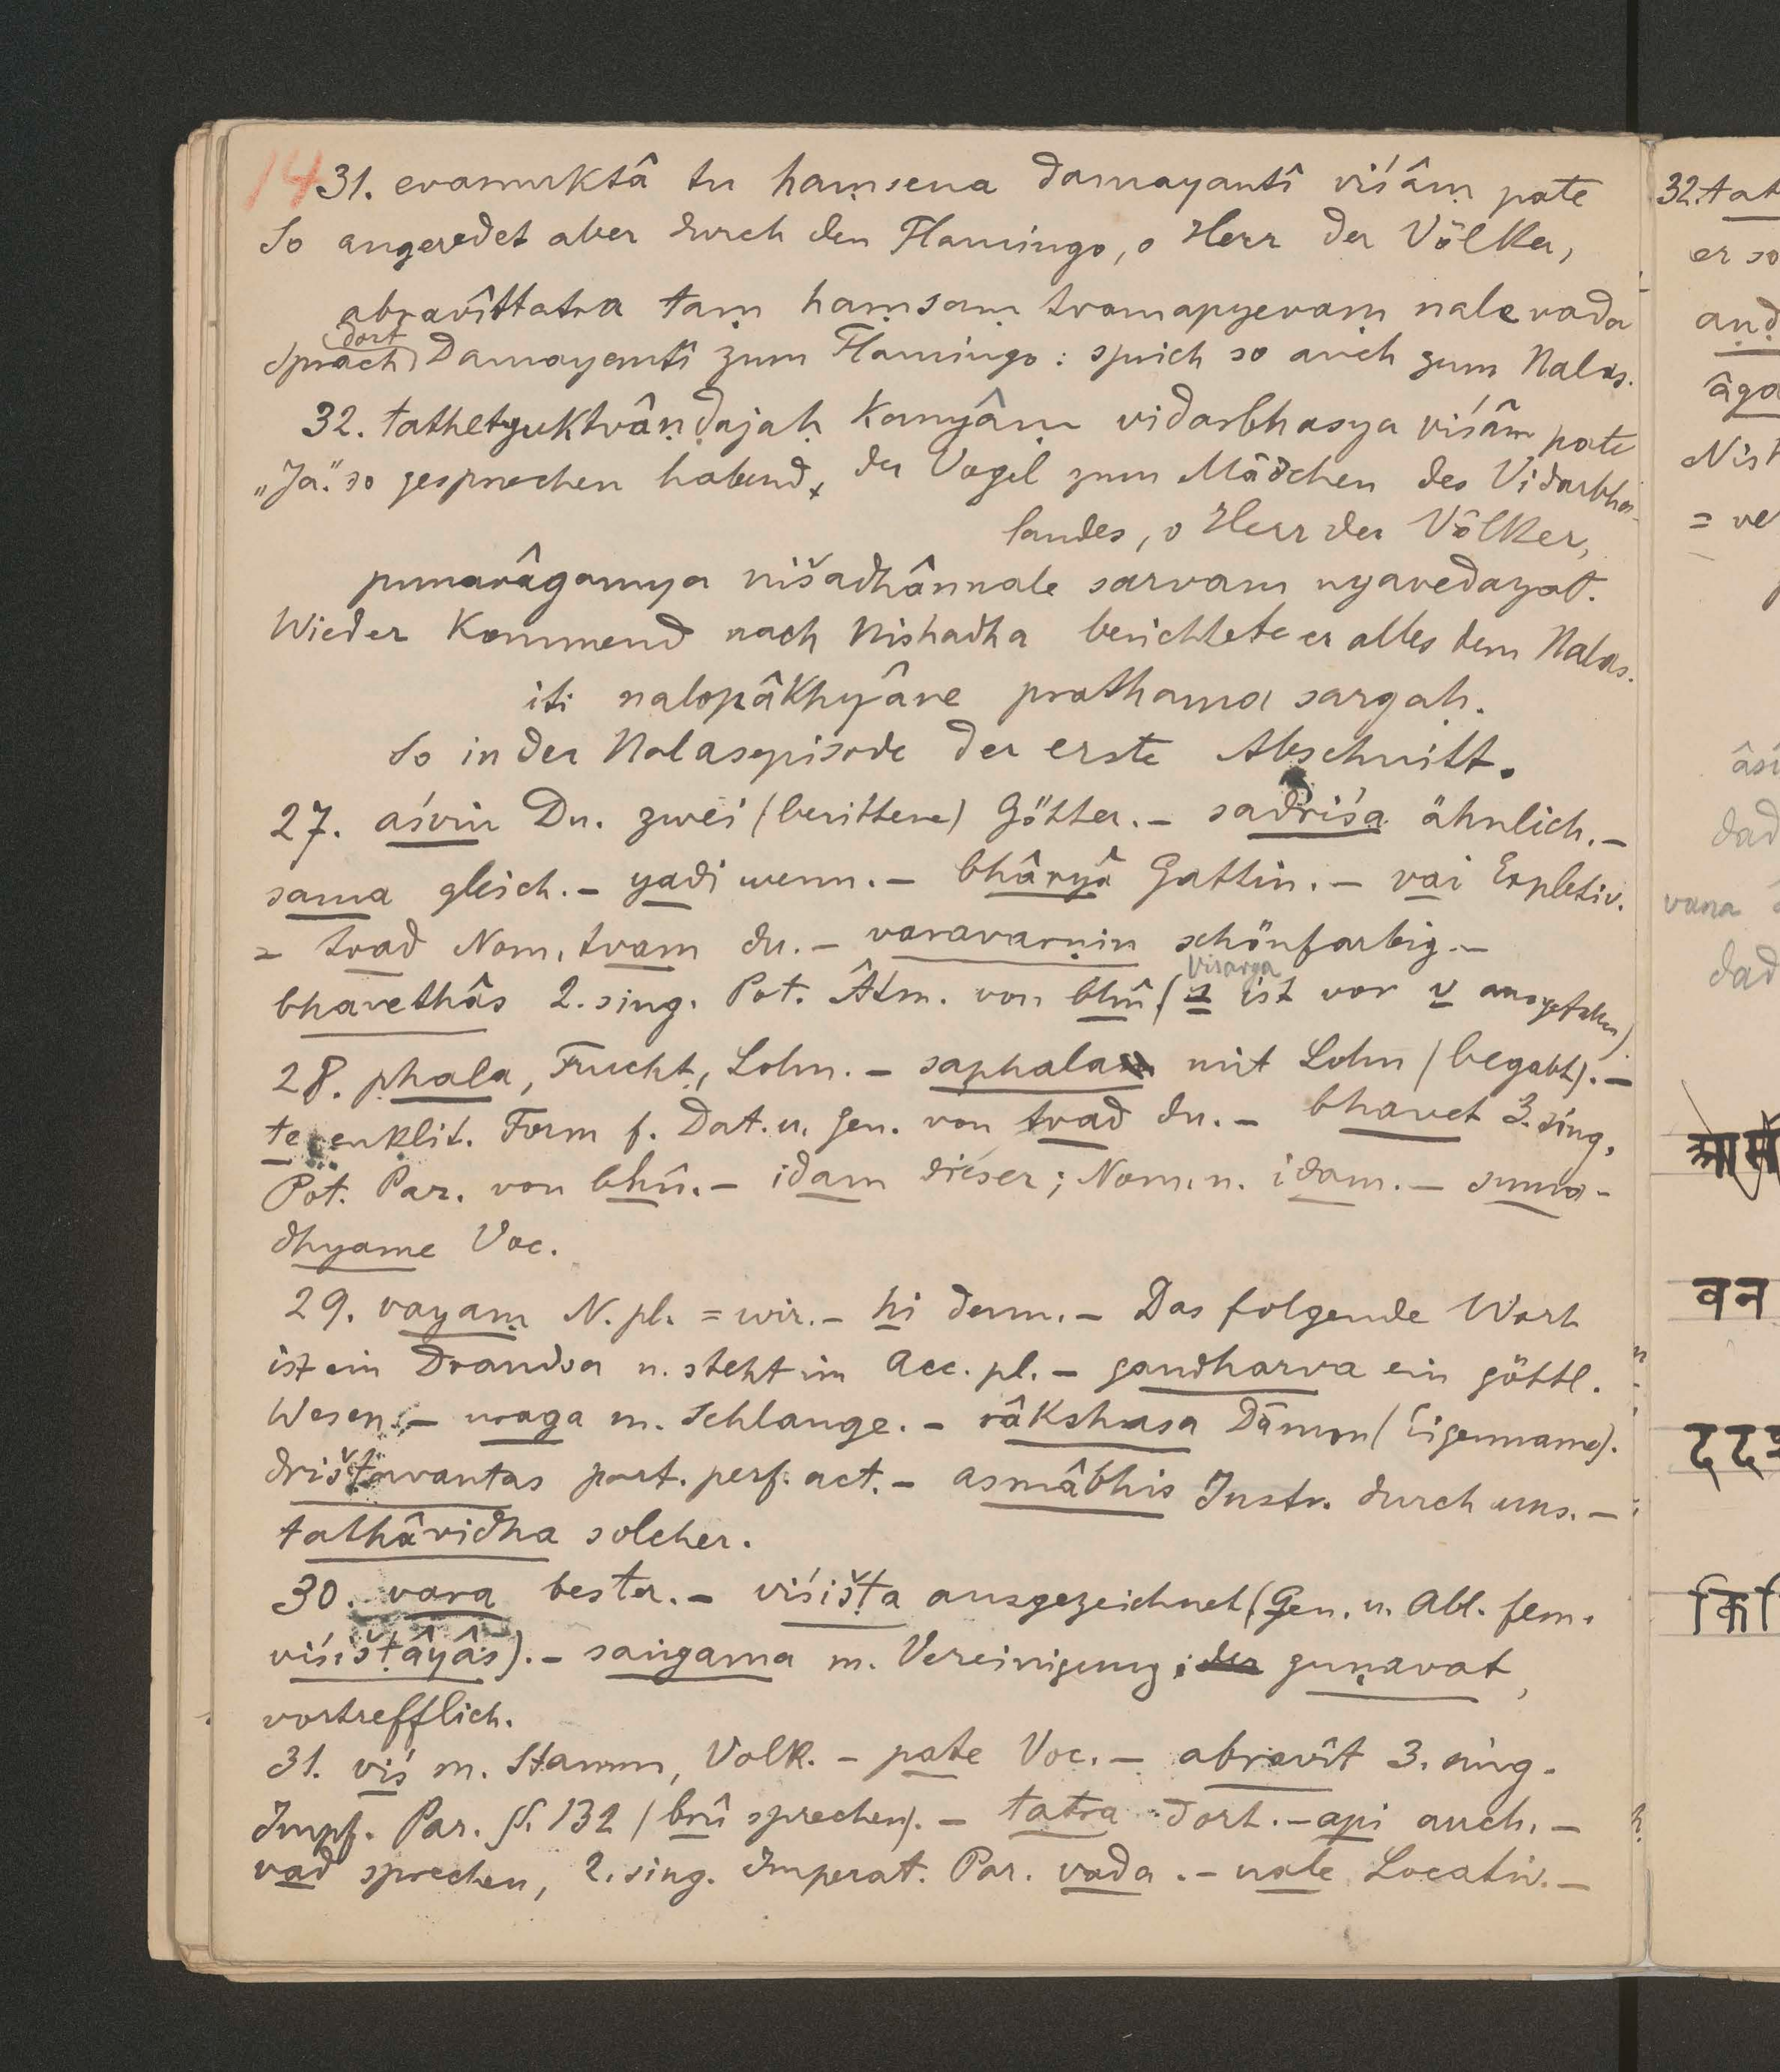 14 31. evamuktâ tu haṃsena damayantî viśâṃ pate
So angeredet aber durch den Flamingo, o Herr der Völker,
abravîttatra taṃ haṃsaṃ tvamapyevaṃ nale vada
dort
sprach Damayantî zum Flamingo: sprich so auch zum Nalas.
32. tathetyuktvâṇḍajaḥ kanyâṃ vidarbhasya viśâm pate
„Ja." so gesprochen habend, der Vogel zum Mädchen des Vidarbha-
landes, o Herr der Völker,
punarâgamya nišadhânnale sarvam nyavedayat.
Wieder kommend nach Nishadha berichtete er alles dem Nalas.
iti nalopâkhyâne prathama sargaḥ.
So in der Nalasepisode der erste Abschnitt.
27. aśvin Du. zwei (berittene) Götter. – sadriśa ähnlich. –
sama gleich. – yadi wenn. – bhâryâ Gattin. – vai Expletiv.
= tvad Nom. tvam du. – varavarṇin schönfarbig. –
Visarga
bhavethâs 2. sing. Pot. Âtm. von bhû (s ist vor v ausgefallen).
28. phala, Frucht, Lohn. – saphala mit Lohn (begabt). –
te enklit. Form f. Dat. u. Gen. von tvad du. – bhavet 3. sing.
Pot. Par. von bhû. – idam dieser; Nom. n. idam. – suma-
dhyame Voc.
29. vayaṃ N. pl. = wir. – hi denn. – Das folgende Wort
ist ein Dvandva u. steht im Acc. pl. – gandharva ein göttl.
Wesen. – uraga m. Schlange. – râkshasa Dämon (Eigenname).
drišṭavantas part. perf. act. – asmâbhis Instr. durch uns. –
tathâvidha solcher.
30. vara bester. – viśišṭa ausgezeichnet (Gen. u. Abl. fem.
viśišṭâyâs). – saṅgama m. Vereinigung; der guṇavat,
vortrefflich.
31. viś m. Stamm, Volk. – pate Voc. – abravît 3. sing.
Impf. Par. §. 132 (brû sprechen). – tatra dort. – api auch. –
vad sprechen, 2. sing. Imperat. Par. vada. – nale Locativ. –
32. tat
er so
aṇḍ
âga
Nis
= ve
âsî
dad
vana
dad
आसी
वन
दद
कि